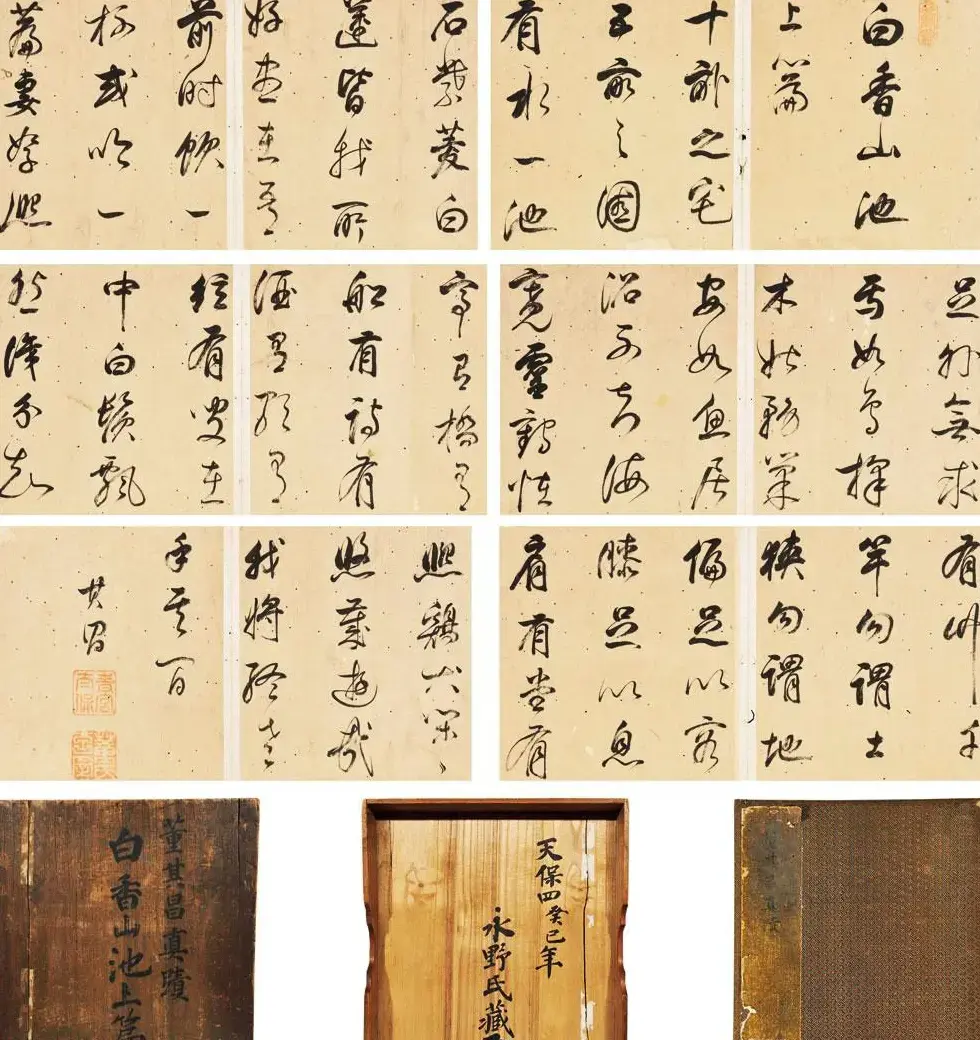 白香山池
上篇
十畝之宅
五畝之園
有水一池
石紫菱白
蓮皆我所
好盡在吾
前時飲一
杯或吟一
篇妻孥熙
足外無求
焉如鳥擇
木姑務巢
安如魚居
沼不知海
寬靈鶴怪
亭有橋有
船有詩有
酒有歌有
絃有叟在
中白鬚飄
然識分知
有竹千
竿勿謂土
狹勿謂地
偏足以容
膝足以息
肩有堂有
熙鷄犬閑〻
悠哉遊哉
我將終老
乎其間
其昌
董其昌真蹟
白香山池上篇
天保四癸巳年
永野氏藏